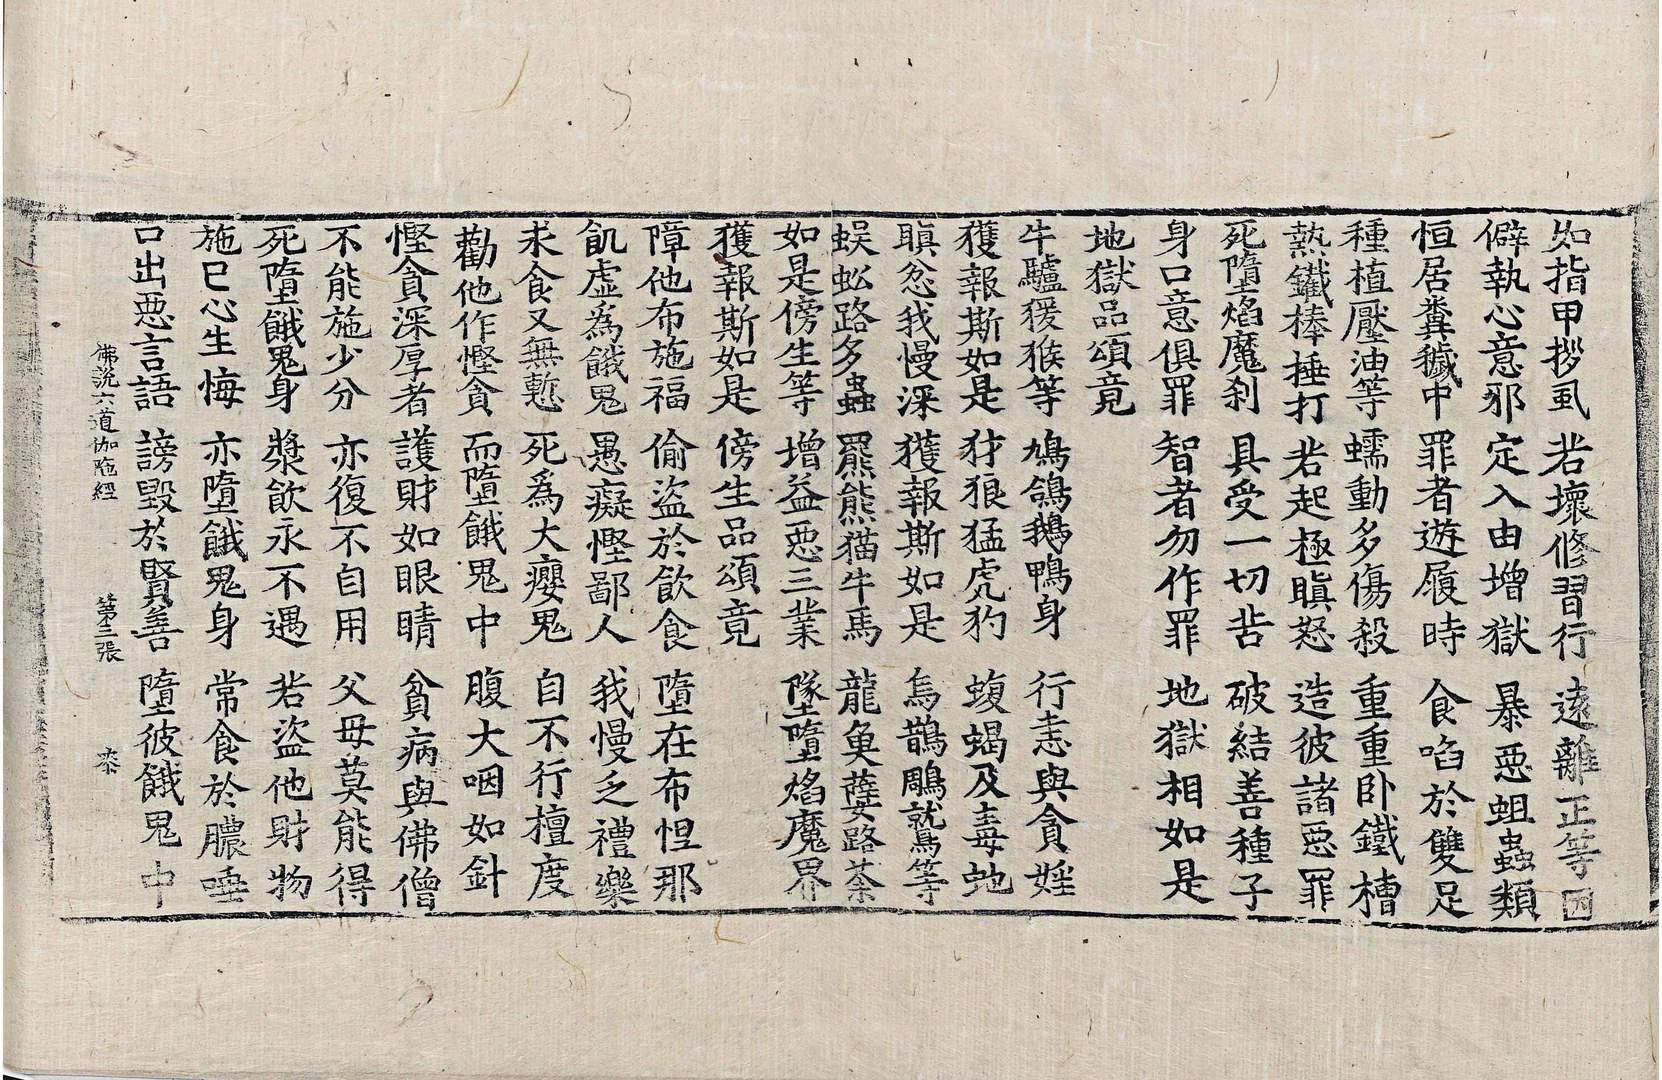 如指甲拶虱 若壞修習行 遠離正等因
僻執心意邪 定入由增獄 暴惡蛆蟲類
恒居糞穢中 罪者遊履時 食啗於雙足
種植壓油等 蠕動多傷殺 重重臥鐵槽
熱鐵棒捶打 若起極瞋怒 造彼諸惡罪
死墮焰魔刹 具受一切苦 破結善種子
身口意俱罪 智者勿作罪 地獄相如是
地獄品頌竟
牛驢猨猴等 鳩鴿鵝鴨身 行恚與貪婬
獲報斯如是 犲狼猛虎犳 蝮蝎及毒虵
瞋忿我慢深 獲報斯如是 烏鵲鵰鷲等
蜈蚣路多蟲 羆熊猫牛馬 龍魚孽路荼
如是傍生等 增益惡三業 墜墮焰魔界
獲報斯如是 傍生品頌竟
障他布施福 偷盜於飲食 墮在布怛那
飢虛為餓鬼 愚癡慳鄙人 我慢乏禮樂
求食又無慙 死為大癭鬼 自不行檀度
勸他作慳貪 而墮餓鬼中 腹大咽如針
慳貪深厚者 護財如眼睛 貧病與佛僧
不能施少分 亦復不自用 父母莫能得
死墮餓鬼身 漿飲永不遇 若盜他財物
施已心生悔 亦墮餓鬼身 常食於膿唾
口出惡言語 謗毀於賢善 墮彼餓鬼中
佛說六道伽陁經 第三張